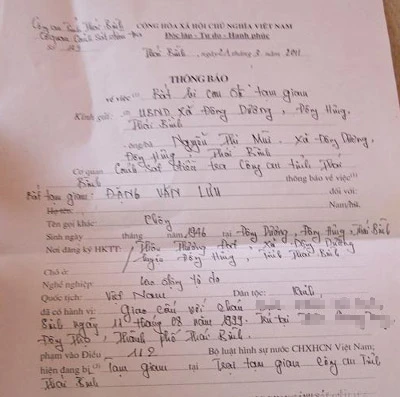 Công an Tỉnh Thái Bình
Cơ quan Cảnh sát điều tra
Số: 129
CỘNG HÒA XÃ HỘI CHỦ NGHĨA VIỆT NAM
Độc lập - Tự do - Hạnh phúc
Thái Bình, ngày 21 tháng 3 năm 2011
THÔNG BÁO
về việc Bắt bị can để tạm giam
Kính gửi: UBND xã Đông Dương, Đông Hưng,
Thái Bình
ông/bà Nguyễn Thị Mùi, xã Đông Dương,
Đông Hưng, Thái Bình
Cơ quan Cảnh sát điều tra Công an tỉnh Thái
Bình thông báo về việc
Bắt tạm giam: ĐẶNG VĂN LƯU đối với:
Họ tên: Nam/nữ.
Tên gọi khác: Không
Sinh ngày tháng năm 1946 tại Đông Dương, Đông Hưng, Thái Bình
Nơi đăng ký HKTT: Thôn Thượng xã Đông Dương
huyện Đông Hưng, Tỉnh Thái Bình
Chỗ ở:
Nghề nghiệp: lao động tự do
Quốc tịch: Việt Nam Dân tộc: Kinh
đã có hành vi: Giao cấu với cháu
Sinh ngày 11 tháng 08 năm 1999. Trú tại
Đông Thọ, Thành phố Thái Bình.
phạm vào Điều 112 Bộ luật hình sự nước CHXHCN Việt Nam,
hiện đang bị Tạm giam tại Trại tạm giam Công an Tỉnh
Thái Bình